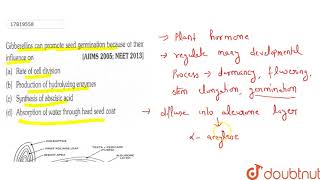 17819558
Gibberellins can promote seed germination because of their
influence on [AIIMS 2005; NEET 2013]
(a) Rate of cell division
(b) Production of hydrolyzing enzymes
(c) Synthesis of abscisic acid
(d) Absorption of water through hard seed coat
→ Plant hormone
→ regulate many developmental
Process → dormancy, flowering,
stem elongation, germination
→ diffuse into aleurone layer
α-amylase
doubtnut